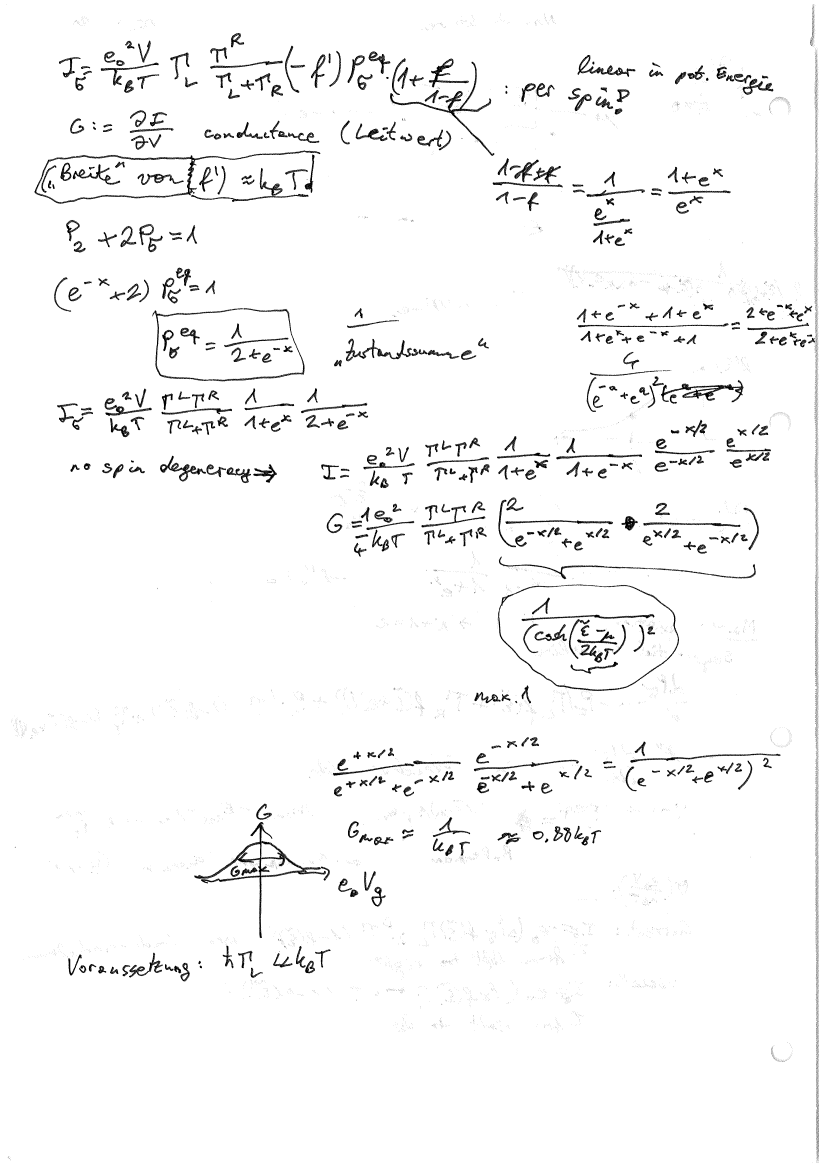 I_σ = e₀²V/(k_BT) Γ_L Γ^R/(Γ_L+Γ_R) (-f') P_σ^eq. (1 + f/(1-f)) : per spin! linear in pot. Energie
G := ∂I/∂V conductance (Leitwert)
„Breite" von (f') ≈ k_BT
(1-f+f)/(1-f) = 1/(e^x/(1+e^x)) = (1+e^x)/e^x
P_2 + 2P_σ = 1
(e^-x + 2) P_σ^eq = 1
P_σ^eq = 1/(2+e^-x)
1/„Zustandssumme"
(1+e^-x+1+e^x)/(1+e^x+e^-x+1) = (2+e^-x+e^x)/(2+e^x+e^-x)
4/(e^-a+e^a)²
I_σ = e₀²V/(k_BT) Γ^LΓ^R/(Γ^L+Γ^R) 1/(1+e^x) 1/(2+e^-x)
no spin degeneracy ⇒ I = e₀²V/(k_B T) Γ^LΓ^R/(Γ^L+Γ^R) 1/(1+e^x) 1/(1+e^-x) e^-x/2/e^-x/2 e^x/2/e^x/2
G = 1/4 e₀²/(k_BT) Γ^LΓ^R/(Γ^L+Γ^R) (2/(e^-x/2+e^x/2) • 2/(e^x/2+e^-x/2))
1/(cosh((ε̃-μ)/(2k_BT)))²
max. 1
e^+x/2/(e^+x/2+e^-x/2) e^-x/2/(e^-x/2+e^x/2) = 1/(e^-x/2+e^x/2)²
G
G_max ≈ 1/(k_BT) ≈ 0.88k_BT
G_max
e₀V_g
Voraussetzung: ħΓ_L ≪ k_BT